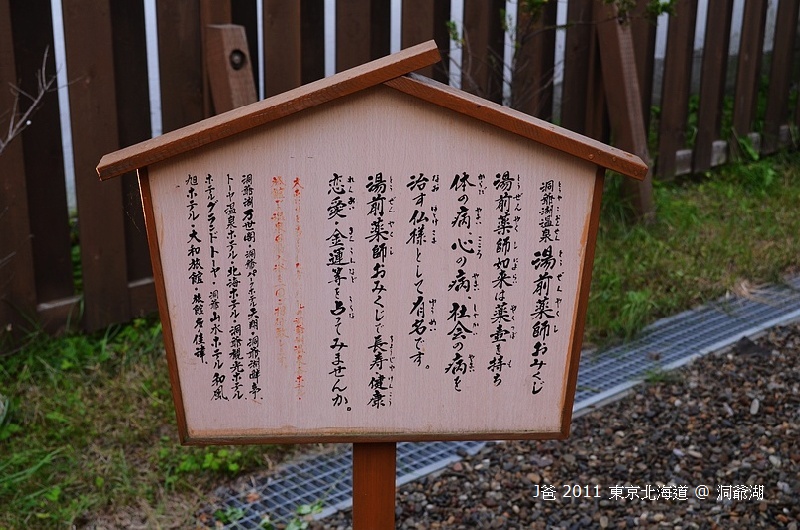 洞爺湖温泉 湯前薬師おみくじ
湯前薬師如来は薬壷を持ち
体の病、心の病、社会の病を
治す仏様として有名です。
湯前薬師おみくじで長寿・健康
恋愛・金運等を占ってみませんか。
洞爺湖万世閣・洞爺パークホテル天翔・洞爺湖畔亭
トーヤ温泉ホテル・北海ホテル・洞爺観光ホテル
ホテルグランドトーヤ・洞爺山水ホテル和風
旭ホテル・大和旅館・旅館
J爸 2011 東京北海道 @ 洞爺湖